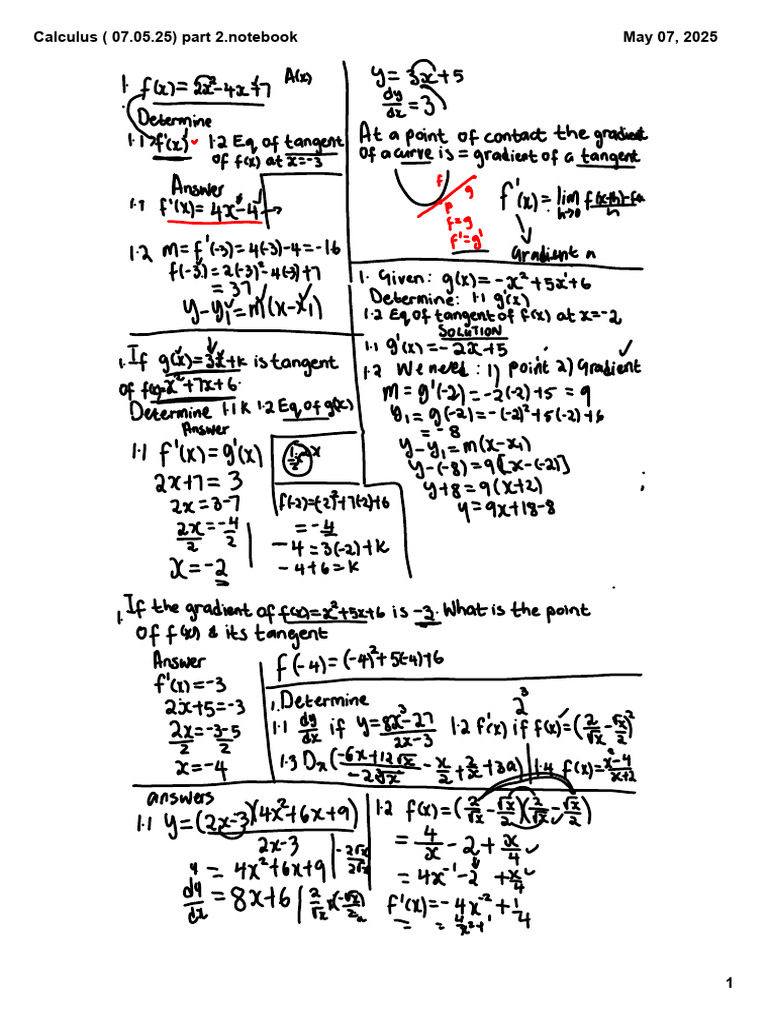 Calculus ( 07.05.25) part 2.notebook
May 07, 2025
1. f(x) = 2x²-4x+7 A(x)
Determine
1.1 f'(x) 1.2 Eq of tangent
of f(x) at x=-3
Answer
1.1 f'(x) = 4x-4
1.2 m = f'(-3) = 4(-3)-4 = -16
f(-3) = 2(-3)²-4(-3)+7
= 37
y-y₁ = m(x-x₁)
y = 3x+5
dy/dx = 3
At a point of contact the gradient
of a curve is = gradient of a tangent
f
g
p
f=g
f'=g'
f'(x) = lim h→0 f(x+h)-f(x)/h
Gradient
1. Given: g(x) = -x²+5x+6
Determine: 1.1 g'(x)
1.2 Eq of tangent of f(x) at x=-2
SOLUTION
1.1 g'(x) = -2x+5
1.2 We need: 1) point 2) Gradient
m = g'(-2) = -2(-2)+5 = 9
y₁ = g(-2) = -(-2)²+5(-2)+6
= -8
y-y₁ = m(x-x₁)
y-(-8) = 9[x-(-2)]
y+8 = 9(x+2)
y = 9x+18-8
1. If g(x) = 3x+k is tangent
of f(x)=x²+7x+6.
Determine 1.1 k 1.2 Eq of g(x)
Answer
1.1 f'(x) = g'(x)
2x+7 = 3
2x = 3-7
2x/2 = -4/2
x = -2
f(-2)=(-2)²+7(-2)+6
= -4
-4 = 3(-2)+k
-4+6 = k
1. If the gradient of f(x)=x²+5x+6 is -3. What is the point
of f(x) & its tangent
Answer
f'(x) = -3
2x+5 = -3
2x/2 = -3-5/2
x = -4
f(-4) = (-4)²+5(-4)+6
1. Determine
2³
1.1 dy/dx if y = 8x³-27/2x-3 1.2 f'(x) if f(x) = (2/√x - √x/2)²
1.4 f(x) = x²-4/x+2
answers
1.1 y = (2x-3)(4x²+6x+9)/2x-3
y = 4x²+6x+9
dy/dx = 8x+6
1.2 f(x) = (2/√x - √x/2)(2/√x - √x/2)
= 4/x - 2 + x/4
= 4x⁻¹ - 2 + x/4
f'(x) = -4x⁻² + 1/4
1